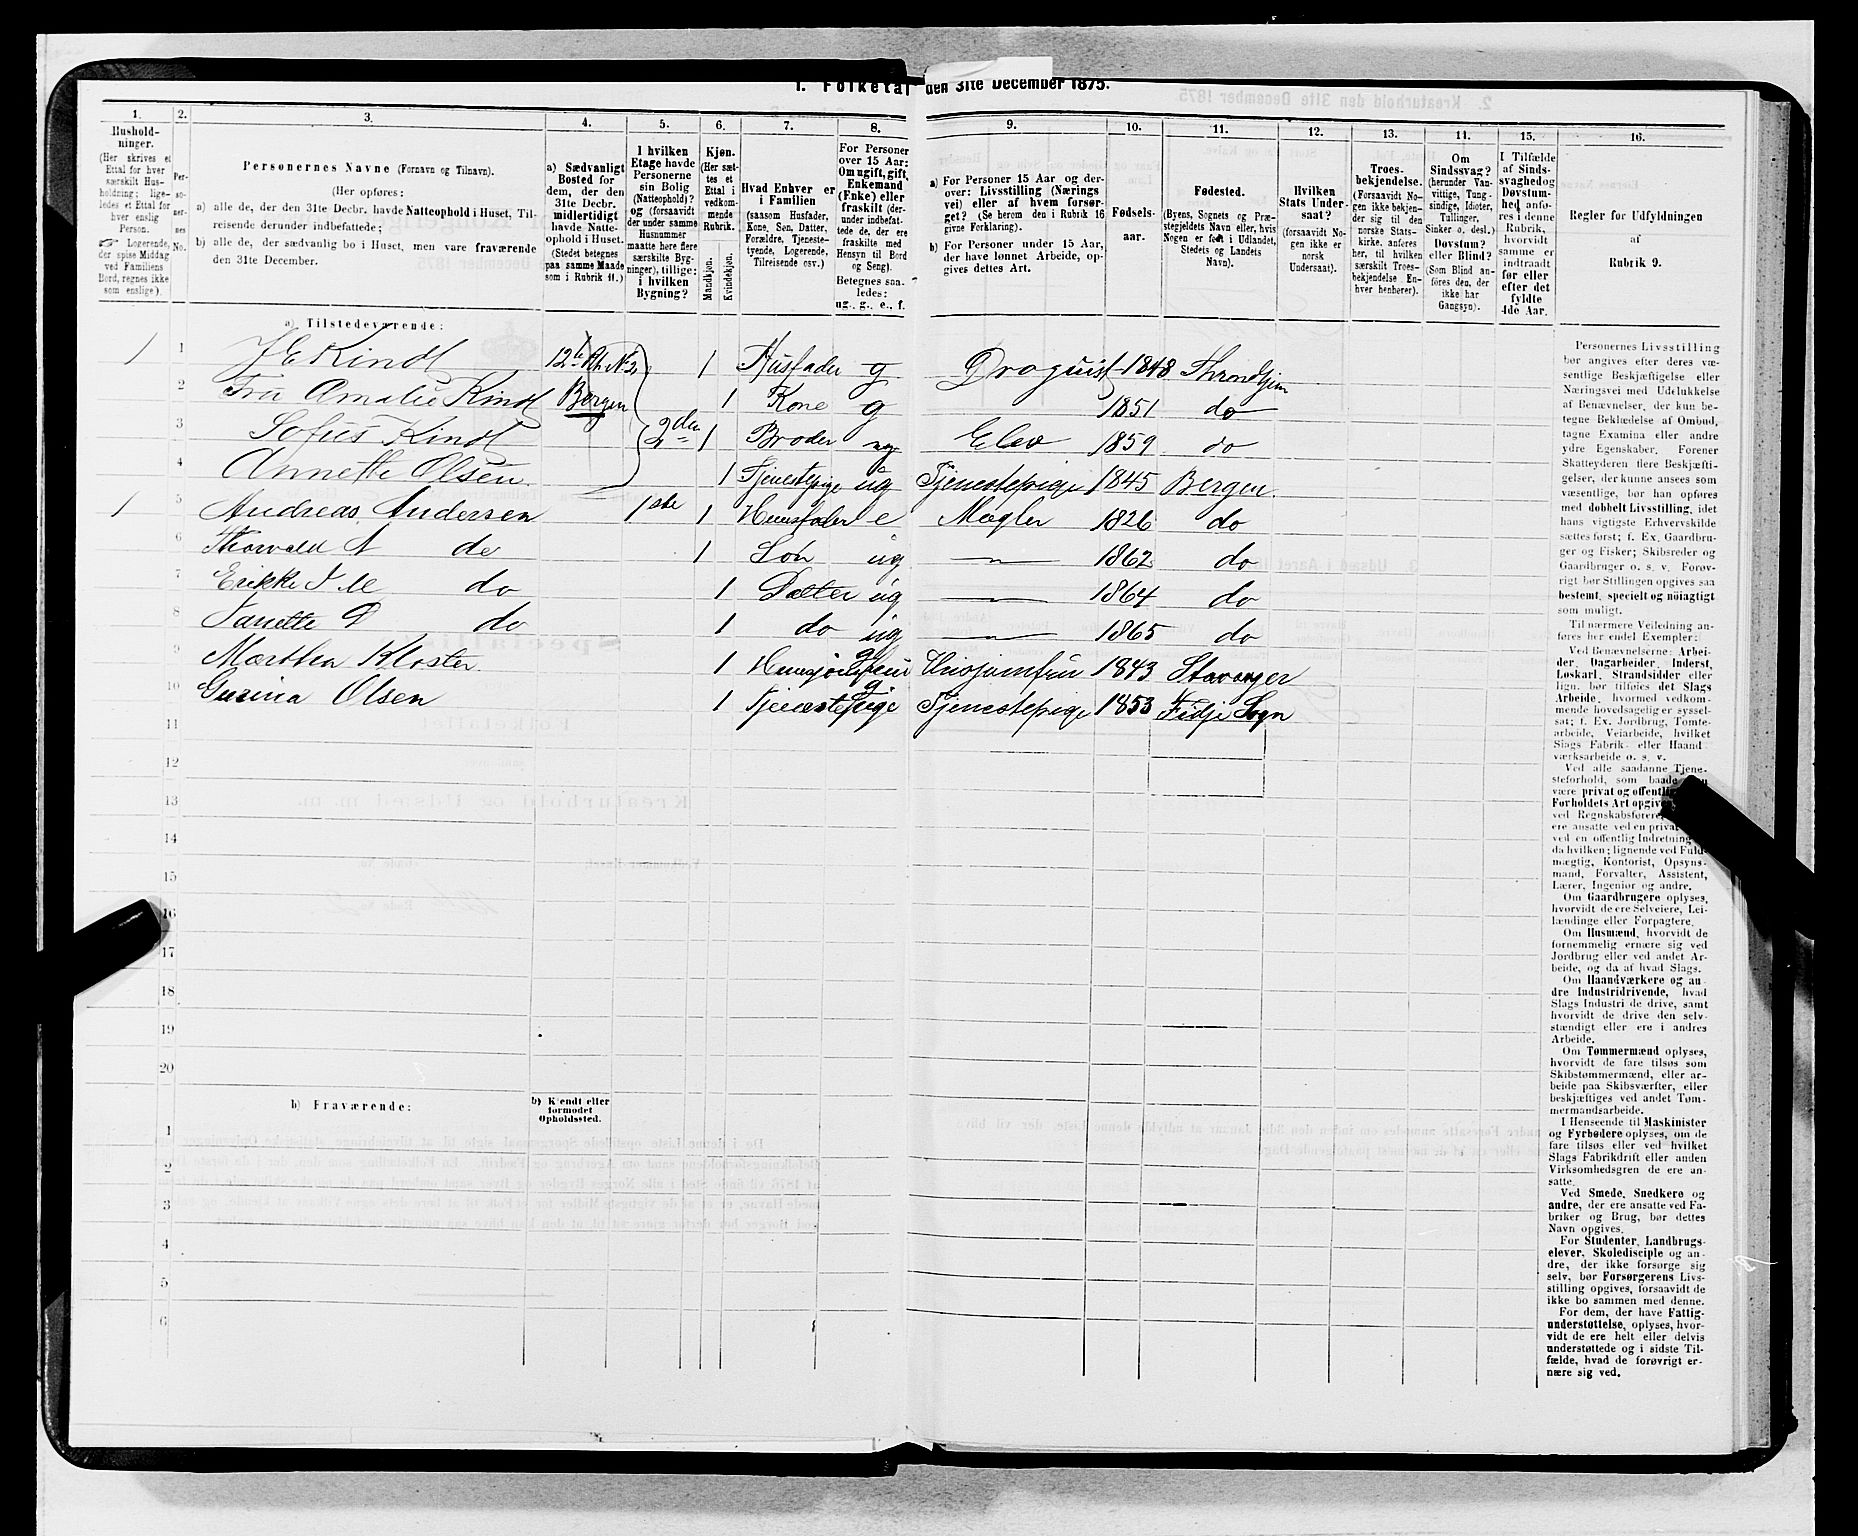 1. Folketal den 31te December 1875.
1. 2. 3. 4. 5. 6. 7. 8. 9. 10. 11. 12. 13. 14. 15. 16.
Hushold-
ninger.
(Her skrives et
Ettal for hver
særskilt Hus-
holdning; lige-
ledes et Ettal for
hver enslig
Person.
☞ Logerende,
der spise Middag
ved Familiens
Bord, regnes ikke
som enslige).
Per-
so-
ner-
nes
No.
Personernes Navne (Fornavn og Tilnavn).
(Her opføres:
a) alle de, der den 31te Decbr. havde Natteophold i Huset, Til-
reisende derunder indbefattede;
b) alle de, der sædvanlig bo i Huset, men vare fraværende
den 31te December.
a) Sædvanligt
Bosted for
dem, der den
31te Decbr.
midlertidigt
havde Natte-
ophold i Huset.
(Stedet betegnes
paa samme Maade
som i Rubrik 11.)
I hvilken
Etage havde
Personerne
sin Bolig
(Natteophold)?
og (forsaavidt
der under samme
Husnummer
maatte høre flere
særskilte Byg-
ninger), tillige:
i hvilken
Bygning?
Kjøn.
(Her sæt-
tes et
Ettal i
vedkom-
mende
Rubrik.
Mandkjøn.
Kvindekjøn.
Hvad Enhver er
i Familien
(saasom Husfader,
Kone, Søn, Datter,
Forældre, Tjeneste-
tyende, Logerende,
Tilreisende osv.)
For Personer
over 15 Aar:
Om ugift, gift,
Enkemand
(Enke) eller
fraskilt (der-
under indbefat-
tede de, der ere
fraskilte med
Hensyn til Bord
og Seng).
Betegnes saa-
ledes:
ug., g., e., f.
a) For Personer 15 Aar og der-
over: Livsstilling (Nærings
vei) eller af hvem forsør-
get? (Se herom den i Rubrik 16
givne Forklaring).
b) For Personer under 15 Aar,
der have lønnet Arbeide, op-
gives dettes Art.
Fødsels-
aar.
Fødested.
(Byens, Sognets og Præ-
stegjeldets Navn eller, hvis
Nogen er født i Udlandet,
Stedets og Landets
Navn).
Hvilken
Stats Under-
saat?
(forsaavidt No-
gen ikke er
norsk
Undersaat).
Troes-
bekjendelse.
(Forsaavidt No-
gen ikke bekjen-
der sig til den
norske Stats-
kirke, anføres
her, til hvilken
særskilt Troes-
bekjendelse En-
hver henhører).
Om
Sindssvag?
(herunder Van-
vittige, Tung-
sindige, Idioter,
Tullinger,
Sinker o. desl.)
Døvstum?
eller Blind?
(Som Blind an-
føres den, der
ikke har
Gangsyn).
I Tilfælde
af Sinds-
svaghed og
Døvstum-
hed anfø-
res i denne
Rubrik,
hvorvidt
samme er
indtraadt
før eller
efter det
fyldte
4de Aar.
Regler for Udfyldningen
af
Rubrik 9.
a) Tilstedeværende:
1 1 J E Kindt 12te Rd. N 2 1 Husfader g Droguist 1848 Throndhjem
2 Fru Amalie Kindt Bergen 1 Kone g 1851 do
3 Sofus Kindt 2den 1 Broder ug Elev 1859 do
4 Annette Olsen 1 Tjenestepige ug Tjenestepige 1845 Bergen
1 5 Andreas Andersen 1ste 1 Huusfader e Mægler 1826 do
6 Thorvald A do 1 Søn ug — 1862 do
7 Erikke do 1 Datter ug — 1864 do
8 Nanette D do 1 do ug — 1865 do
9 Marthea Kloster 1 Huusjomfru Husjomfru 1843 Stavanger
10 Gurina Olsen 1 Tjenestepige Tjenestepige 1853 Fidje Sogn
11
12
13
14
15
16
17
18
19
20
b) Fraværende:
b) Kjendt eller
formodet
Opholdssted.
1
2
3
4
5
6
Personernes Livsstilling
bør angives efter deres væ-
sentlige Beskjæftigelse eller
Næringsvei med Udelukkelse
af Benævnelser, der kun be-
tegne Beklædelse af Ombud,
tagne Examina eller andre
ydre Egenskaber. Forener
Skatteyderen flere Beskjæfti-
gelser, der kunne ansees som
væsentlige, bør han opføres
med dobbelt Livsstilling, idet
hans vigtigste Erhvervskilde
sættes først; f. Ex. Gaardbru-
ger og Fisker; Skibsreder og
Gaardbruger o. s. v. Forøv-
rigt bør Stillingen opgives saa
bestemt, specielt og nöiagtigt
som muligt.
Til nærmere Veiledning an-
føres her endel Exempler:
Ved Benævnelserne: Arbei-
der, Dagarbeider, Inderst,
Løskarl, Strandsidder eller
lign. bør tilføies det Slags
Arbeide, hvormed vedkom-
mende hovedsagelig er syssel-
sat; f. Ex. Jordbrug, Tomte-
arbeide, Veiarbeide, hvilket
Slags Fabrik- eller Haand-
værksarbeide o. s. v.
Ved alle saadanne Tjene-
steforhold, som baade
være privat og offentlig
Forholdets Art opgives
ved Regnskabsførere,
ere ansatte ved en privat
ved en offentlig Indretning
da hvilken; lignende ved Fuld-
mægtig, Kontorist, Opsyns-
mand, Forvalter, Assistent,
Lærer, Ingeniør og andre.
Om Gaardbrugere oplyses,
hvorvidt de ere Selveiere, Lei-
lændinge eller Forpagtere.
Om Husmænd, hvorvidt de
fornemmelig ernære sig ved
Jordbrug eller ved andet Ar-
beide, og da af hvad Slags.
Om Haandværkere og an-
dre Industridrivende, hvad
Slags Industri de drive, samt
hvorvidt de drive den selv-
stændigt eller ere i andres
Arbeide.
Om Tømmermænd oplyses,
hvorvidt de fare tilsøs som
Skibstømmermænd, eller ar-
beide paa Skibsværfter, eller
beskjæftiges ved andet Tøm-
mermandsarbeide.
I Henseende til Maskinister
og Fyrbødere oplyses, om de
fare tilsøs eller ved hvilket
Slags Fabrikdrift eller anden
Virksomhedsgren de ere an-
satte.
Ved Smede, Snedkere og
andre, der ere ansatte ved Fa-
briker og Brug, bør dettes
Navn opgives.
For Studenter, Landbrugs-
elever, Skoledisciple og an-
dre, der ikke forsørge sig
selv, bør Forsørgerens Livs-
stilling opgives, forsaavidt de
ikke bo sammen med denne.
For dem, der have Fattig-
understøttelse, oplyses, hvor-
vidt de ere helt eller delvis
understøttede og i sidste Til-
fælde, hvad de forøvrigt er-
nære sig ved.